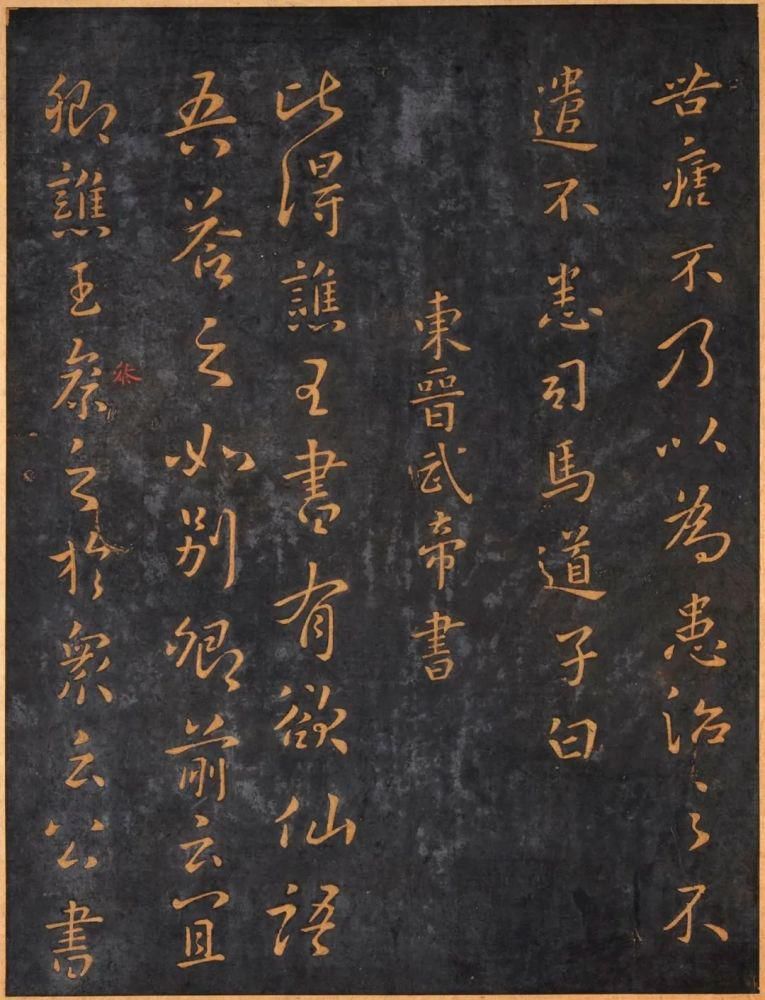 苦不乃以為患治之不
遣不悉司馬道子白
東晉武帝書
此得譙王書有欲仙語
吾答之如別卿前云宜
卿譙王之於衆云公書